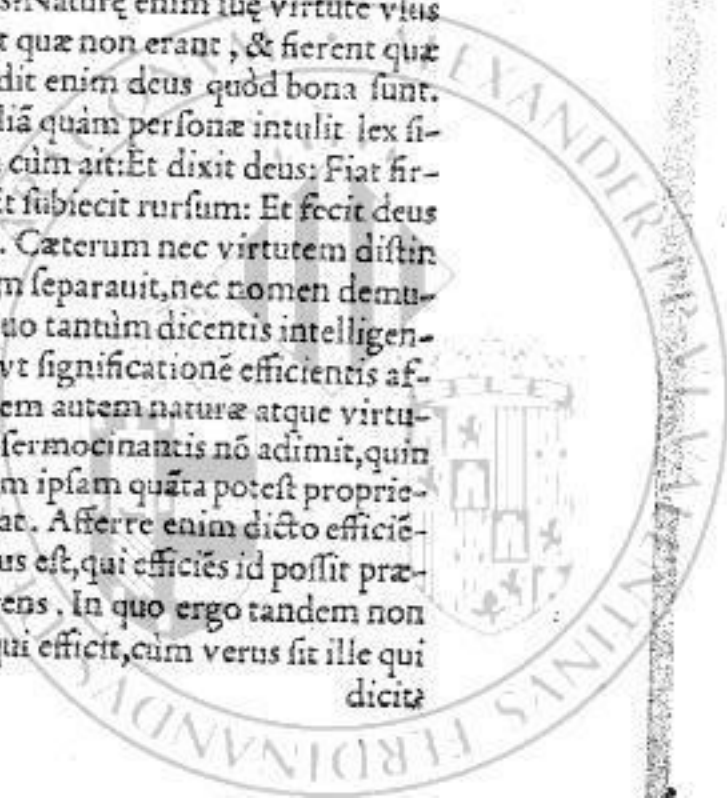 Naturę enim suę virtute vsus
t quæ non erant, & fierent quæ
dit enim deus quòd bona sunt.
liā quàm personæ intulit lex si-
cùm ait: Et dixit deus: Fiat fir-
Et subiecit rursum: Et fecit deus
. Cæterum nec virtutem distin
m separauit, nec nomen demu-
uo tantùm dicentis intelligen-
vt significationē efficientis af-
em autem naturæ atque virtu-
sermocinantis nō adimit, quin
m ipsam quāta potest proprie-
at. Afferre enim dicto efficiē-
us est, qui efficiēs id possit præ-
rens. In quo ergo tandem non
qui efficit, cùm verus sit ille qui
dicit?
ALEXANDER
VALENTINVS FERDINANDVS